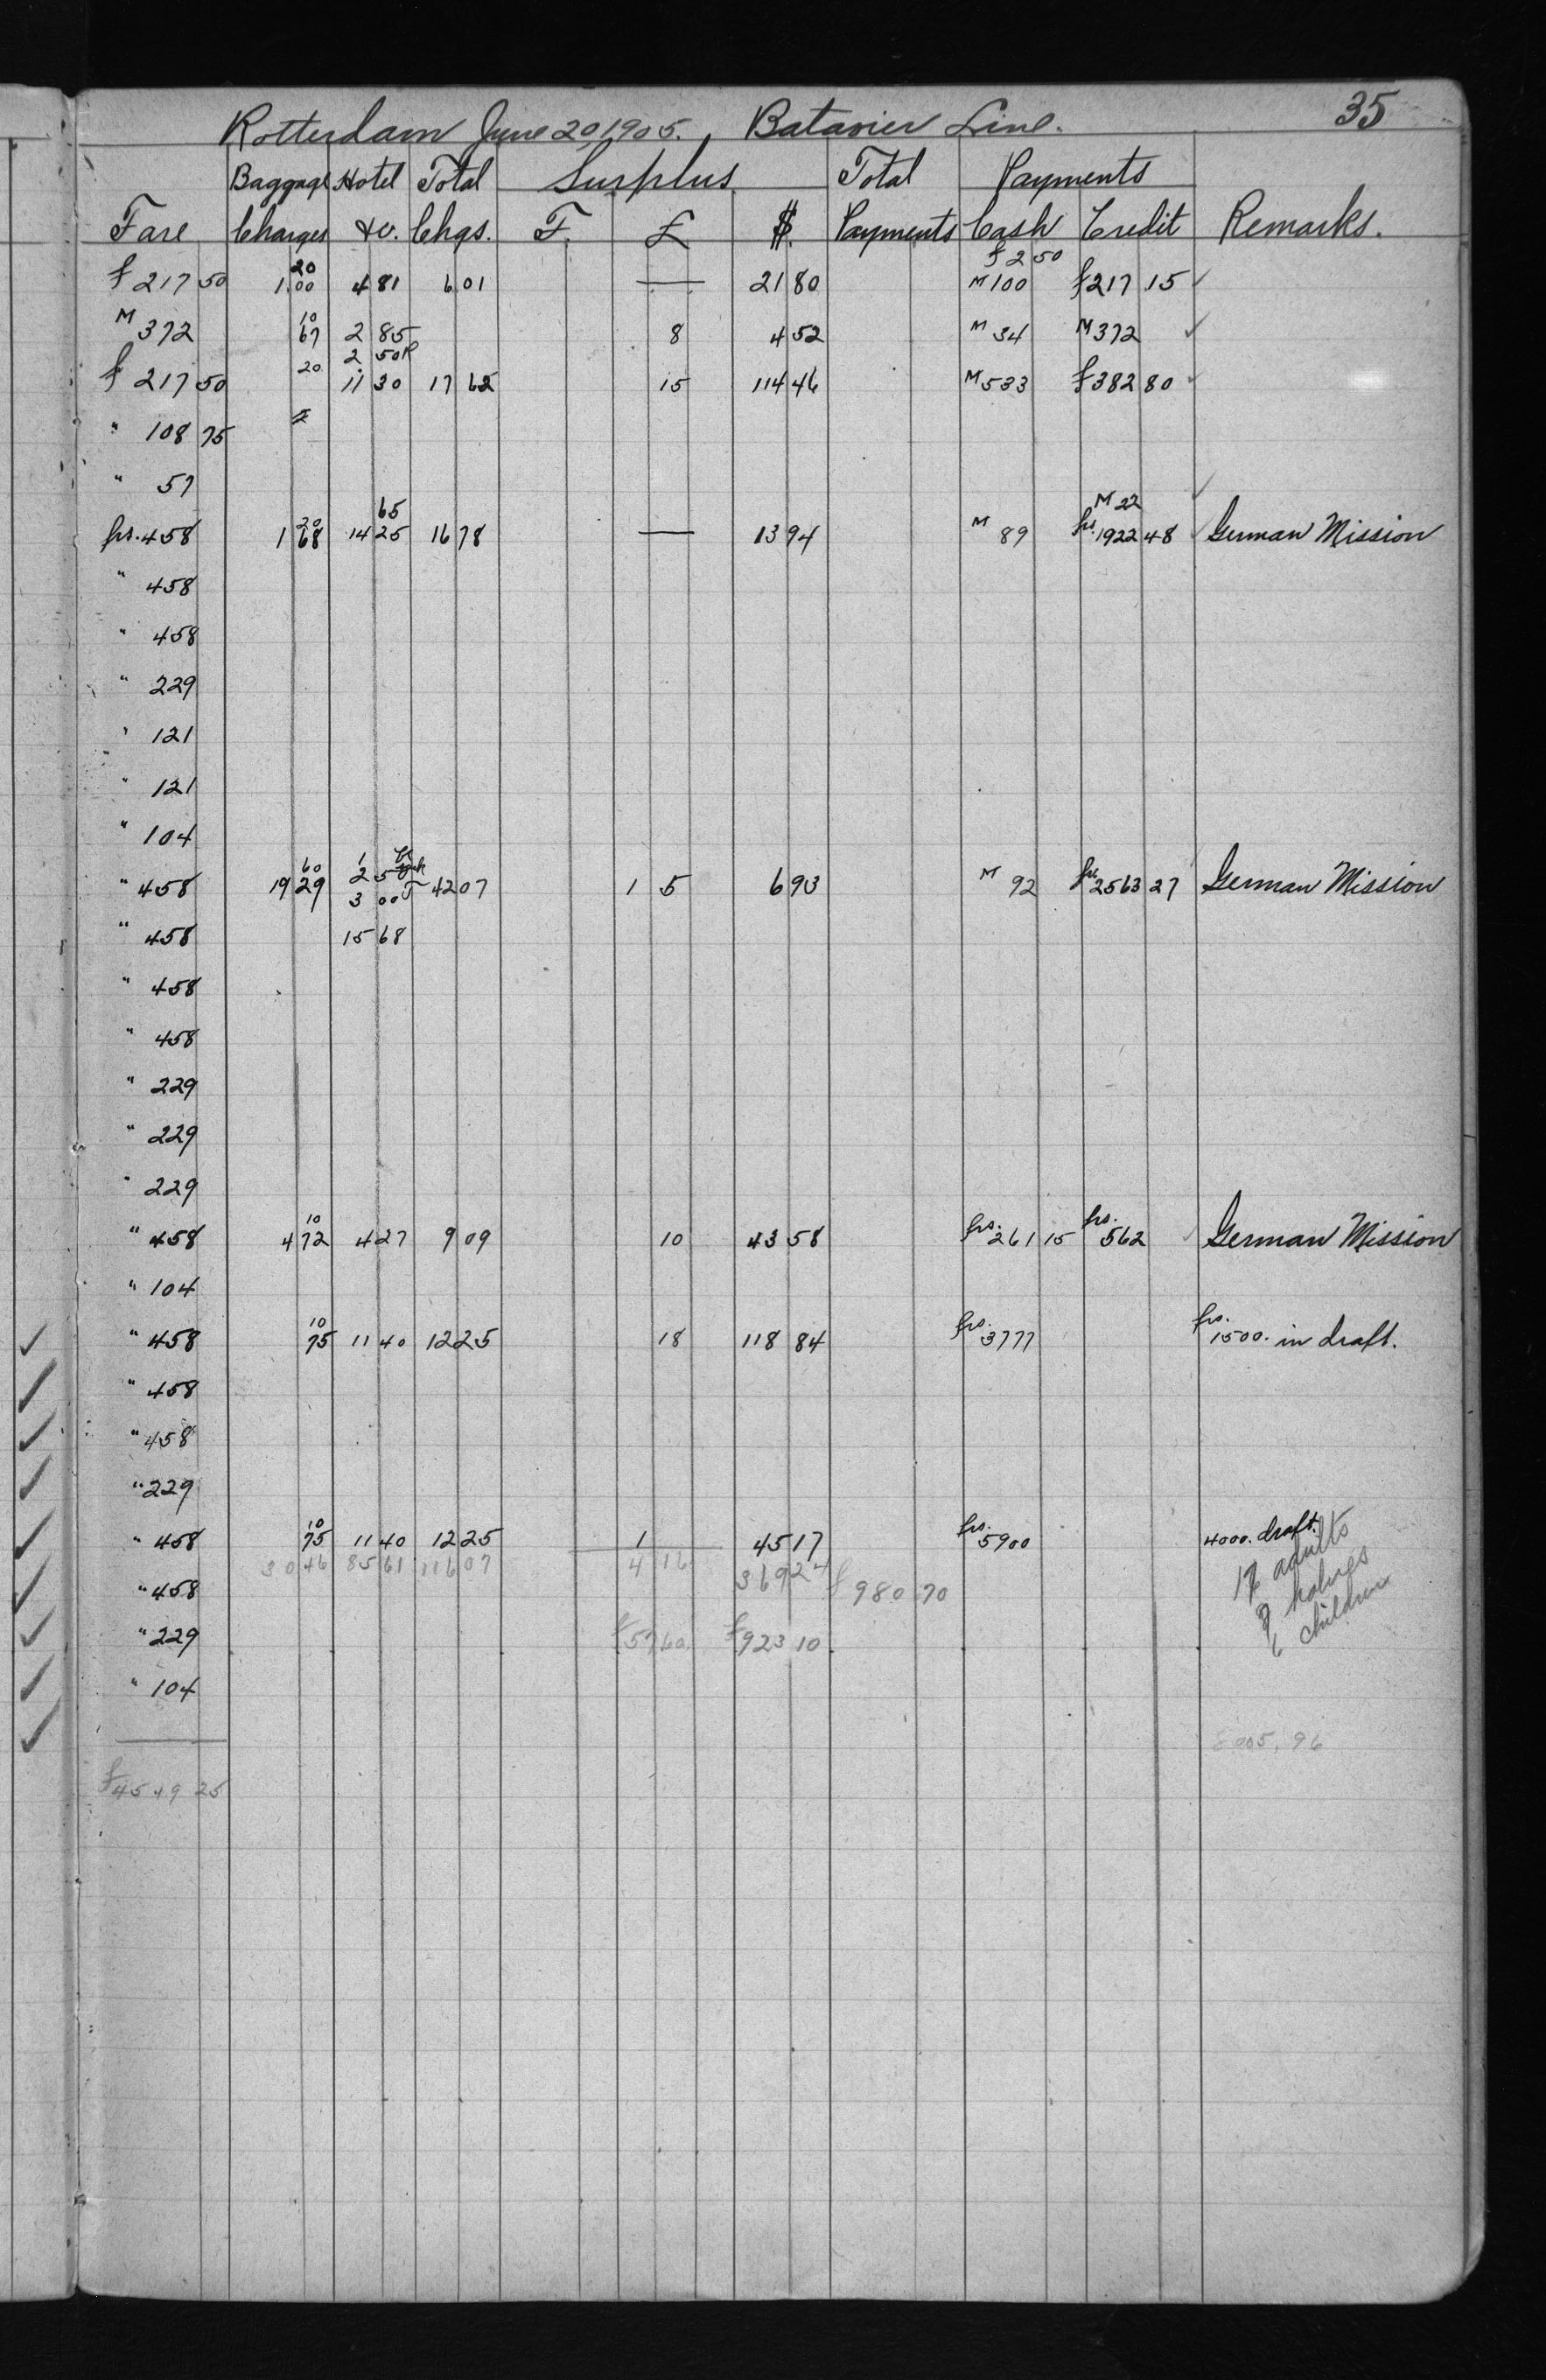 35
Rotterdam June 20, 1905. Batavier Line.
Baggage Hotel Total Surplus Total Payments
Fare Charges &c. Chgs. F. £ $ Payments Cash Credit Remarks.
20 f 2 50
f 217 50 1.00 4 81 6 01 — 21 80 M 100 f 217 15 ✓
10
M 372 67 2 85 8 4 52 M 34 M 372 ✓
20 2 50
f 217 50 11 30 17 62 15 114 46 M 533 f 382 80 ✓
" 108 75
" 57 ✓
20 65 M 22
frs. 458 1 68 14 25 16 78 — 13 94 M 89 frs. 1922 48 German Mission
" 458
" 458
" 229
" 121
" 121
" 104
60 1
2 5
" 458 19 29 3 00 42 07 1 5 6 93 M 92 frs 2563 27 German Mission
" 458 15 68
" 458
" 458
" 229
" 229
" 229
10
" 458 4 72 4 27 9 09 10 43 58 frs. 261 15 frs. 562 ✓ German Mission
" 104
10
✓ " 458 75 11 40 12 25 18 118 84 frs. 3777 frs. 1500. in draft.
✓ " 458
✓ " 458
✓ " 229
10
✓ " 458 75 11 40 12 25 1 45 17 frs. 5900 4000. draft.
30 46 85 61 116 07 4 16 369 24 17 adults
✓ " 458 f 980 70 8 halves
✓ " 229 f 57 60 f 923 10 6 children
✓ " 104
✓
8005, 96
f 4549 25